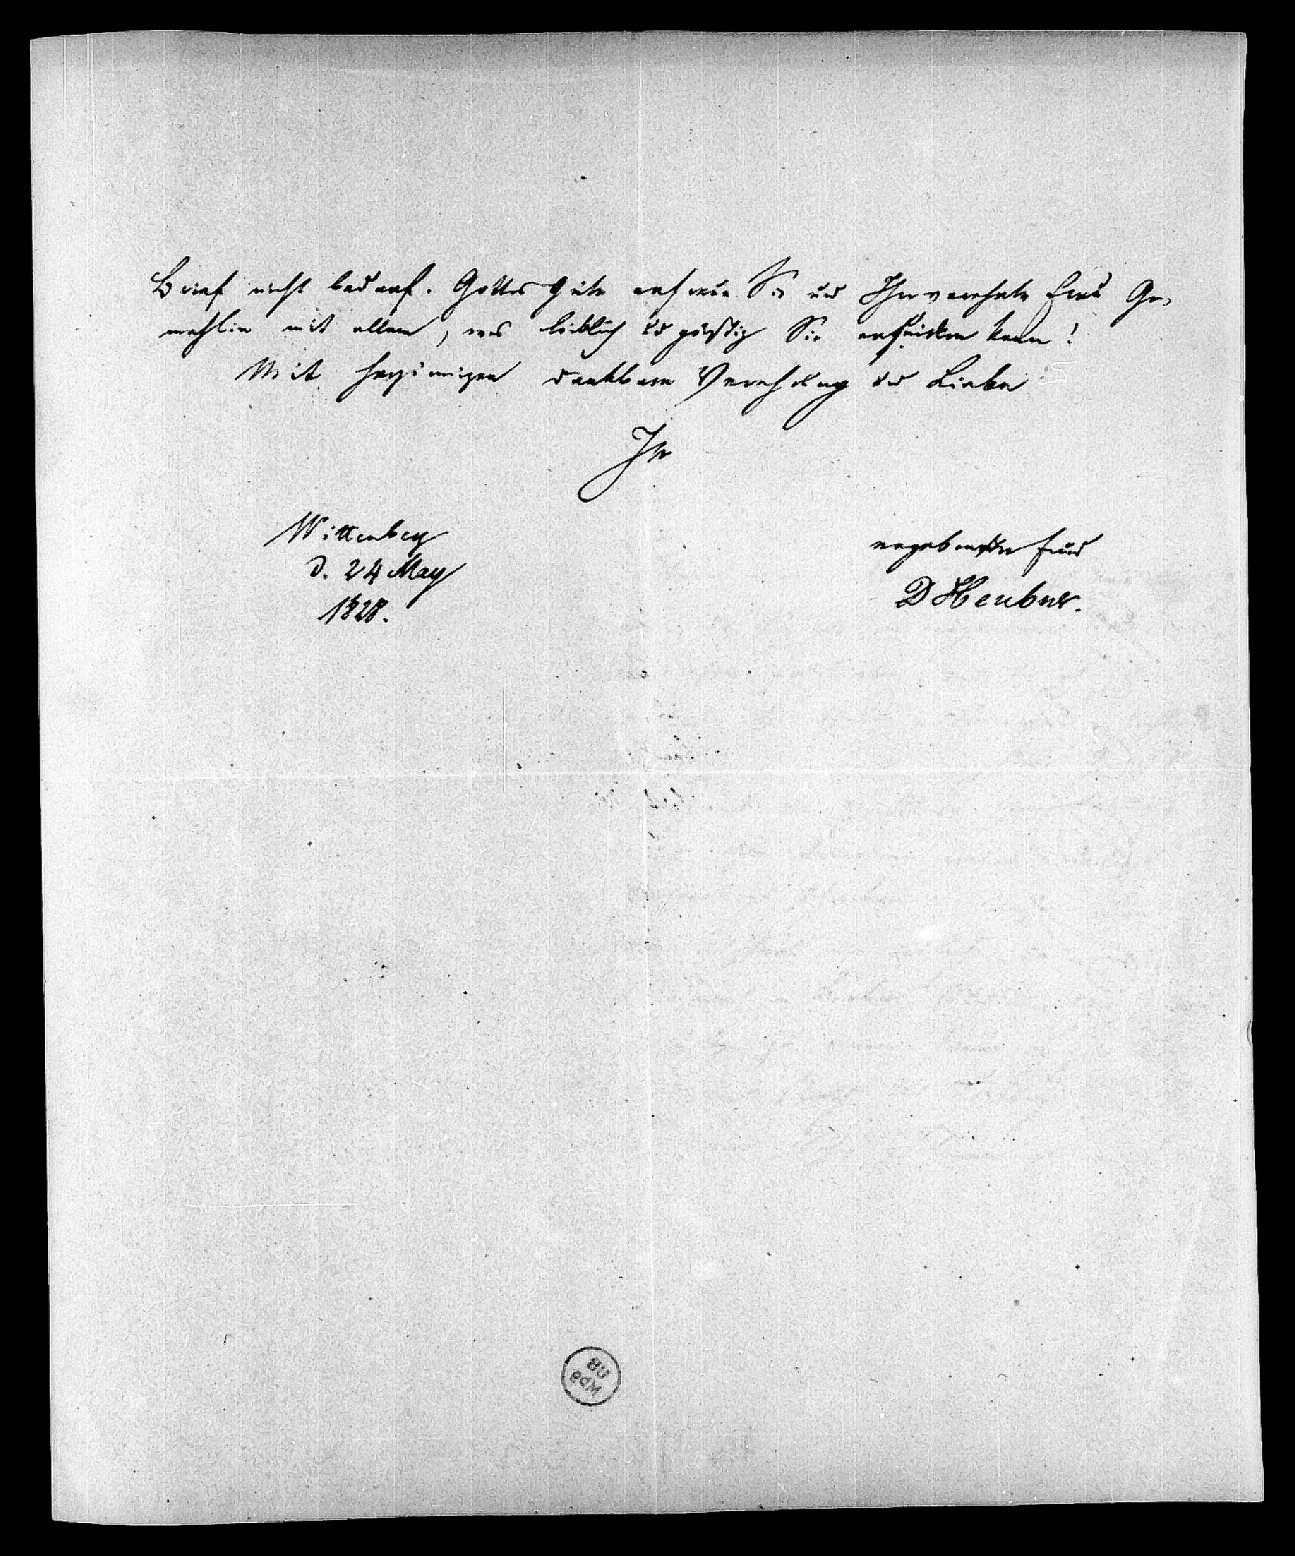 Brief nicht bedarf. Gottes Güte erfreue Sie und Ihre verehrte Frau Ge-
mahlin mit allem, was lieblich und günstig Sie erquicken kann!
Mit herzinnigen dankbarer Verehrung und Liebe
Ihr
Wittenberg
d. 24 May
1828.
ergebenster Freund
D Heubner.